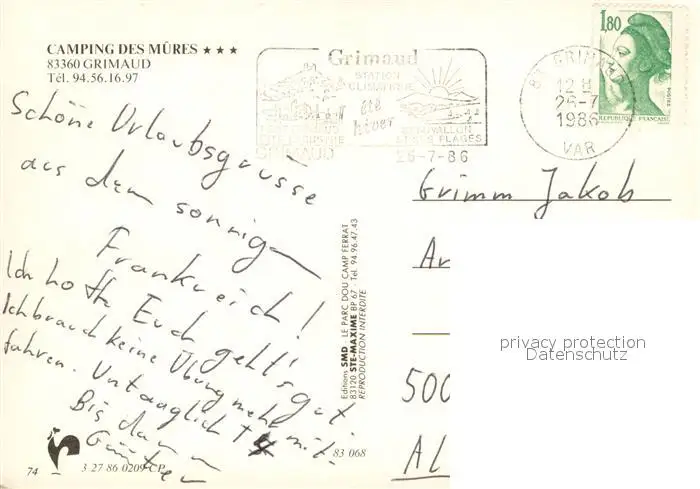 CAMPING DES MÛRES ★★★
83360 GRIMAUD
Tél. 94.56.16.97
Grimaud
STATION
CLIMATIQUE
été
hiver
GRIMAUD
ET SES PLAGES
26-7-86
83 GRIMAUD
12 H
26-7
1986
VAR
1,80
REPUBLIQUE FRANÇAISE
Schöne Urlaubsgrüsse
aus dem sonnigen
Frankreich!
Ich hoffe Euch geht's gut.
Ich brauch keine Übung mehr mit-
fahren. Untauglich T4
Bis dann
Günter
Grimm Jakob
500
AL
privacy protection
Datenschutz
Editions SMD - LE PARC DOU CAMP FERRAT
83120 STE-MAXIME BP 67 - Tél. 94.96.47.43
REPRODUCTION INTERDITE
74
3 27 86 0209 CP
83 068